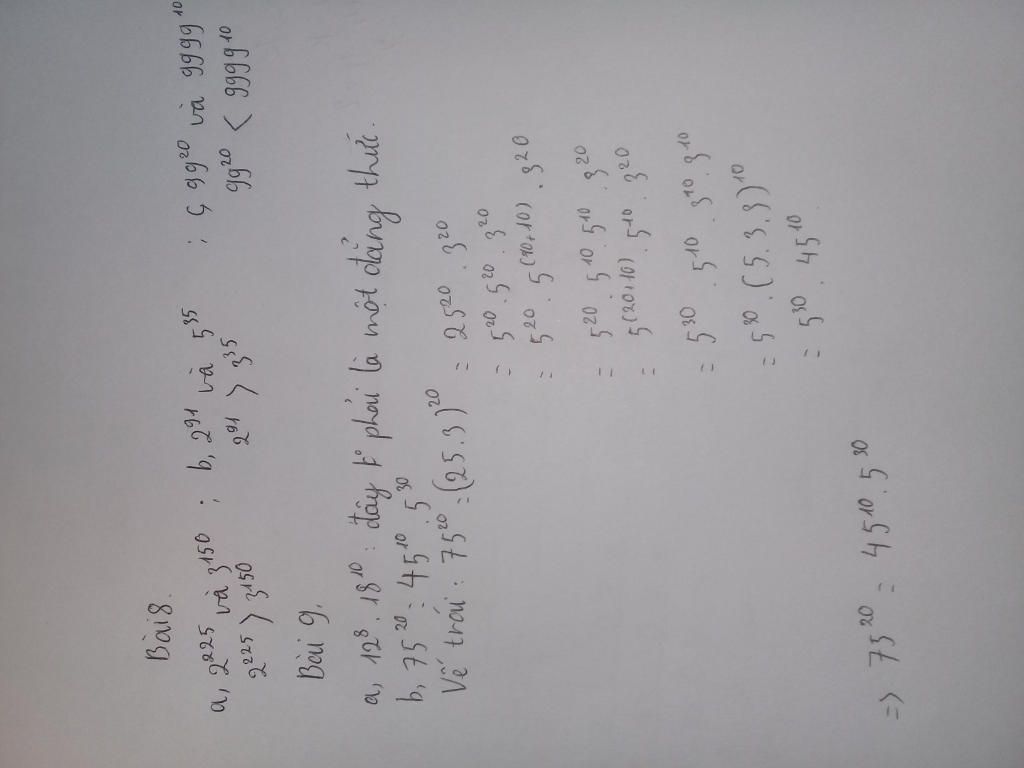 Bài 8.
a, 2^225 và 3^150 ; b, 2^91 và 5^35 ; ç 99^20 và 9999^10
2^225 > 3^150 2^91 > 3^35 99^20 < 9999^10
Bài 9.
a, 12^8 . 18^10 : đây k° phải là một đẳng thức.
b, 75^20 = 45^10 . 5^30
Vế trái : 75^20 = (25.3)^20 = 25^20 . 3^20
= 5^20 . 5^20 . 3^20
= 5^20 . 5^(10+10) . 3^20
= 5^20 . 5^10 . 5^10 . 3^20
= 5^(20+10) . 5^10 . 3^20
= 5^30 . 5^10 . 3^10 . 3^10
= 5^30 . (5.3.3)^10
= 5^30 . 45^10.
=> 75^20 = 45^10 . 5^30